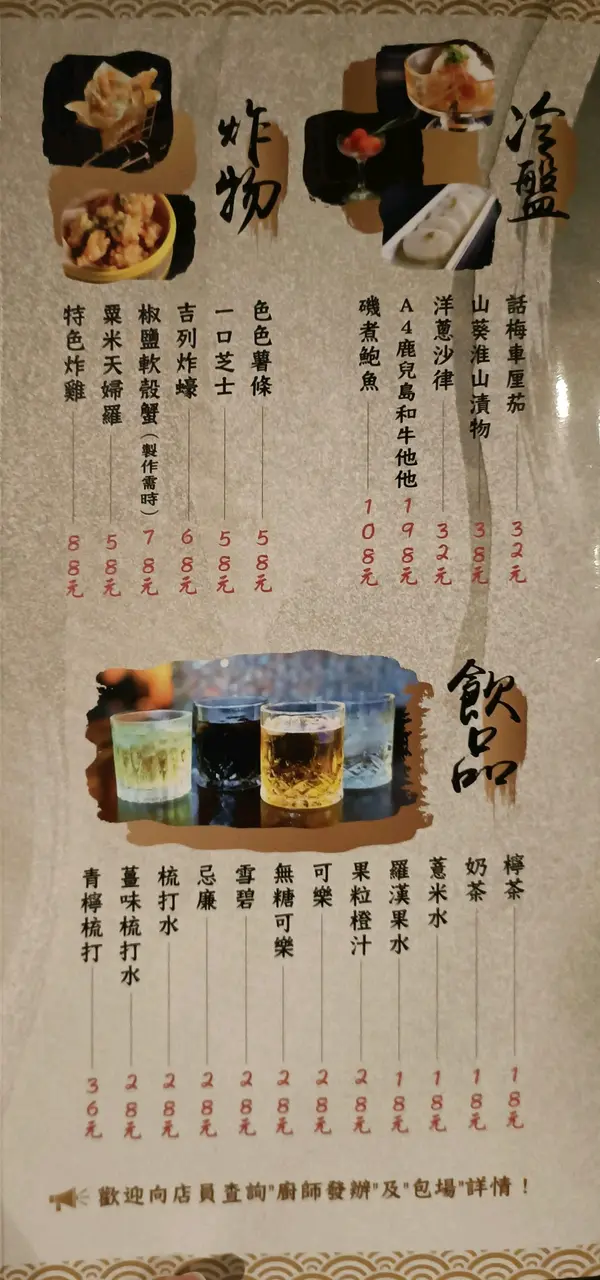 冷盤
話梅車厘茄 32元
山葵淮山漬物 38元
洋蔥沙律 32元
A4鹿兒島和牛他他 198元
磯煮鮑魚 108元
炸物
色色薯條 58元
一口芝士 58元
吉列炸蠔 68元
椒鹽軟殼蟹(製作需時) 78元
粟米天婦羅 58元
特色炸雞 88元
飲品
檸茶 18元
奶茶 18元
薏米水 18元
羅漢果水 18元
果粒橙汁 28元
可樂 28元
無糖可樂 28元
雪碧 28元
忌廉 28元
梳打水 28元
薑味梳打水 28元
青檸梳打 36元
歡迎向店員查詢"廚師發辦"及"包場"詳情！